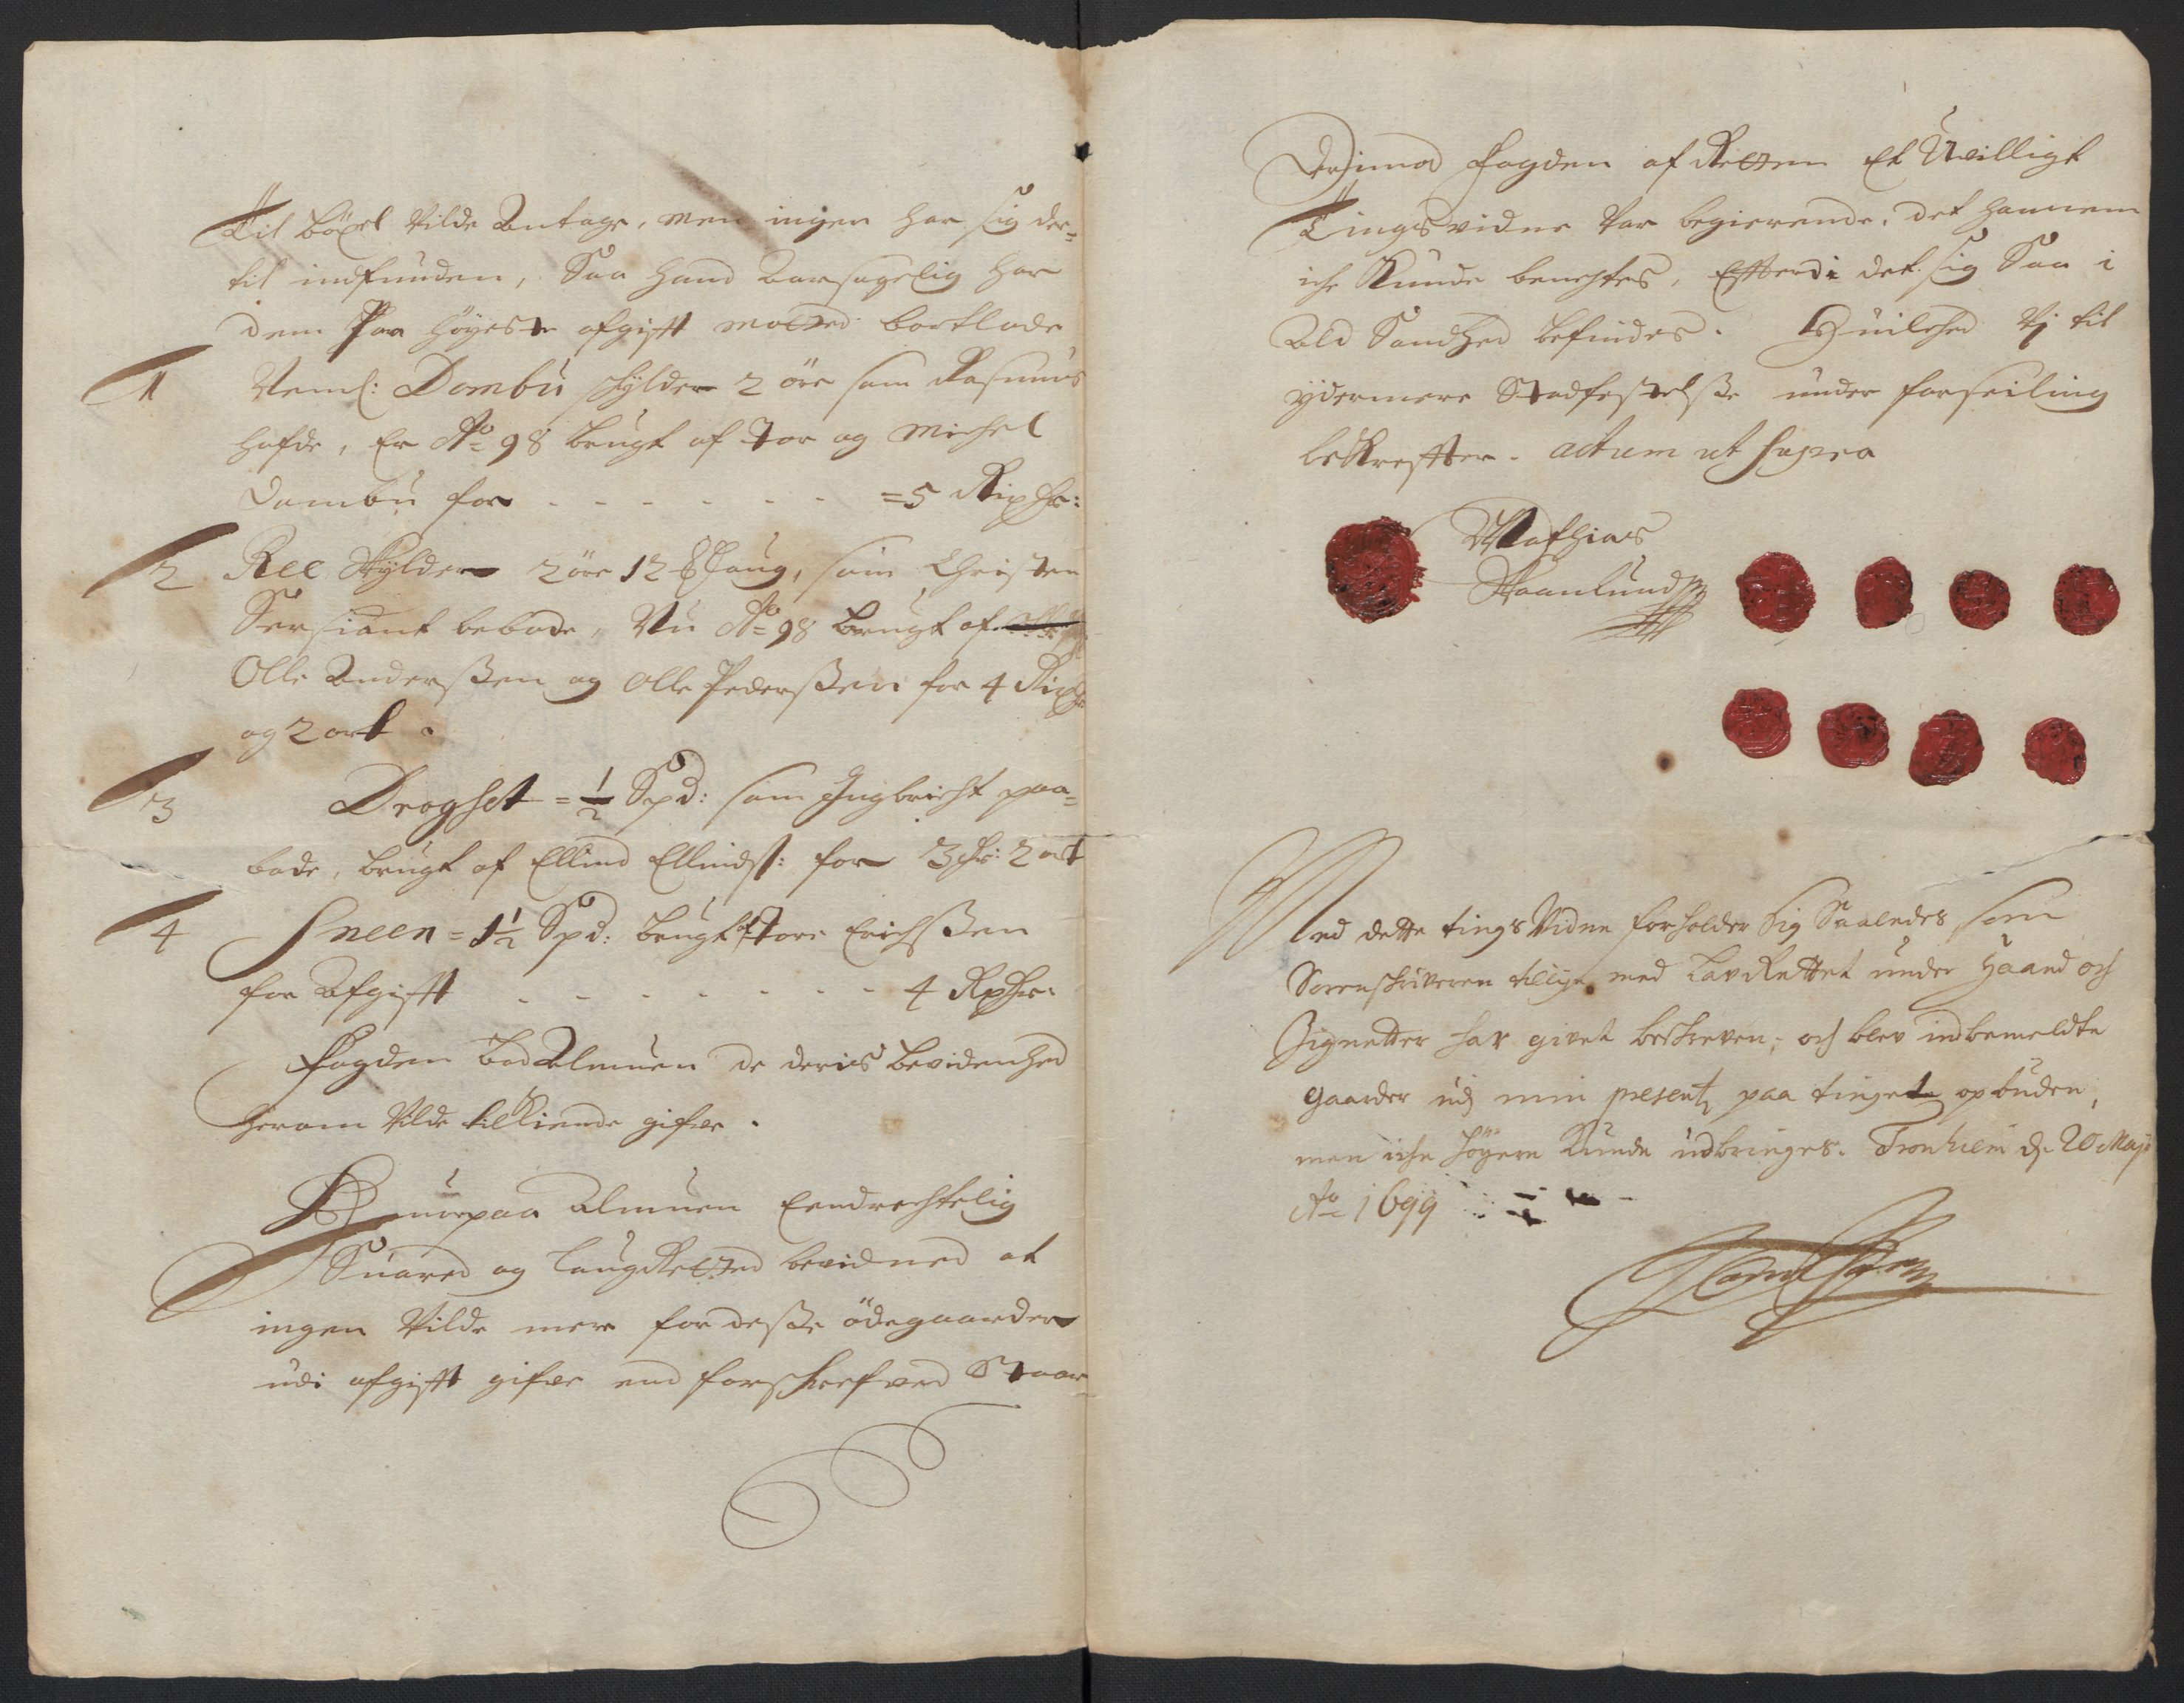 Til böxel vilde Antage, men ingen har sig der=
til indfunden, Saa hand Aarsagelig har
dem Paa Höyeste afgifft motted bortlade
1 Neml: Dombu schylder 2 öre som Rasmus
hafde, Er Ao 98 brugt af Tor og Michel
Dombu for - - - - - - =5 Rixdr:
2 Ree Schylder 2 öre 12 , som Christen
Sersiant bebode, Nu Ao 98 brugt af
Olle Anderßen og Olle Pederßen for 4 Rixdr
og 2 ort.
3 Drogset = ½ Spd: som Ingbricht paa=
bode, brugt af Ellind Ellindß: for 3 dr: 2 ort
4 Sneen = 1½ Spd: brugt af Tore Erichßen
for Afgifft - - - - - - - - 4 Rxdr:
Fogden bad Almuen de deris bevidenhed
herom vilde tilkiende gifve.
Huorpaa Almuen Eendrechtelig
Suared og LaugRetted bevidned at
ingen vilde mere for deße ödegaarder
udi afgifft gifve end forschrefved Staar
Derimod Fogden af Retten Et Uvilligt
Tingsvidne var begierende, det hannem
iche Kunde benechtes, Efterdi det sig Saa i
Ald Sandhed befindes. Huilched Vj til
ydermere Stadfestelße under forseiling
bekreffter. actum ut supra
Mathias
Skaanlund
Med dette tings Vidne forholder sig Saaledes som
Sorenschriveren tillige med LavRettet under Haand och
Zignetter har givet beskreven; och blev indbemeldte
gaarder udj min presentz paa tinget opbuden,
men iche högere Kunde udbringes. Tronhiem d. 20 Maji
Ao 1699